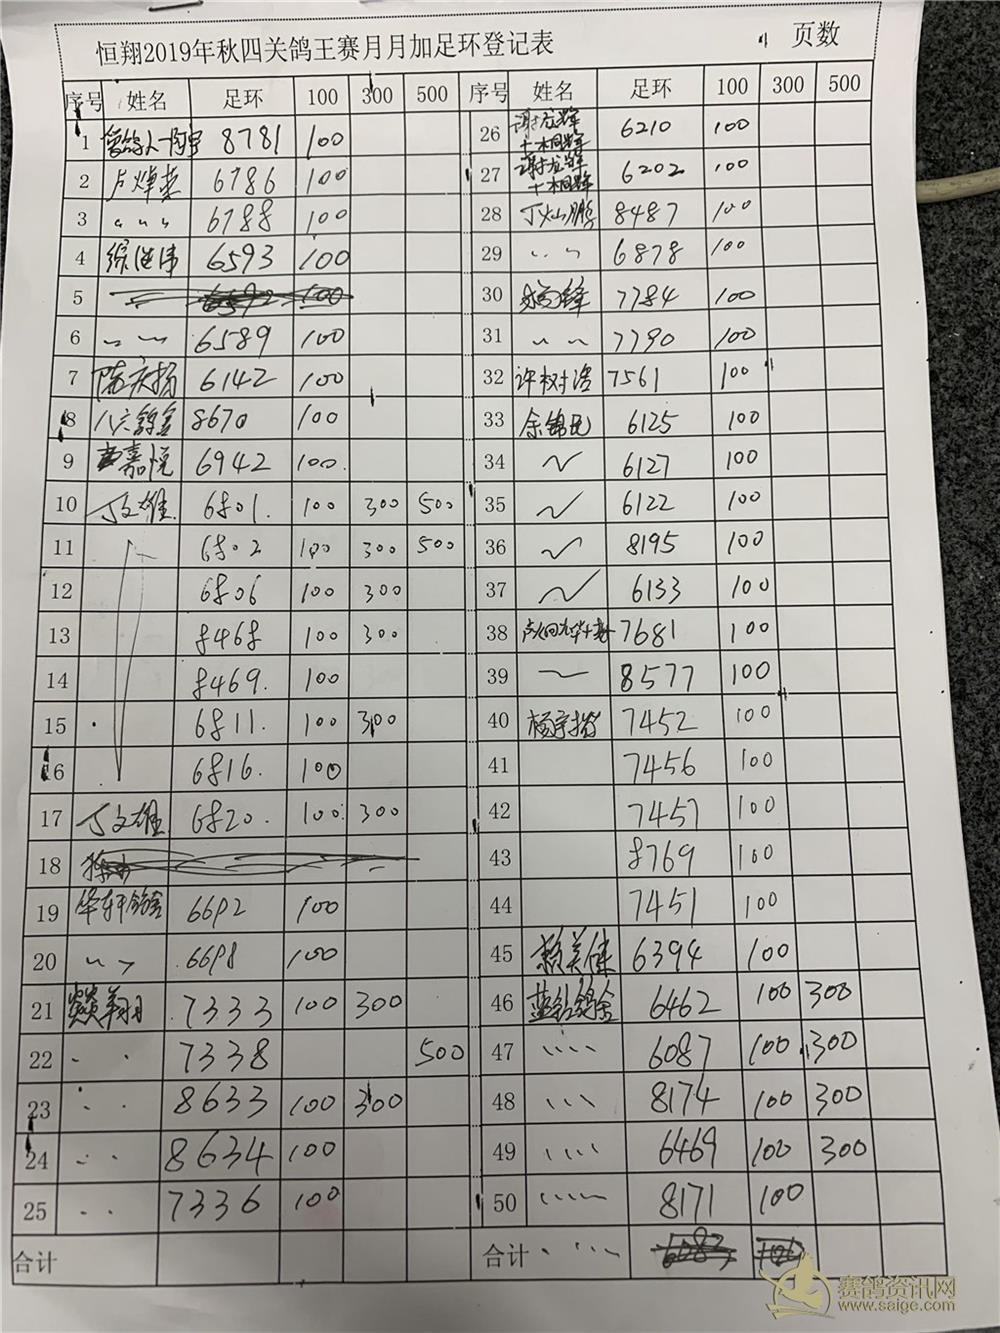 恒翔2019年秋四关鸽王赛月月加足环登记表 页数
序号 姓名 足环 100 300 500 序号 姓名 足环 100 300 500
1 8781 100 26 6210 100
2 6786 100 27 6202 100
3 〃 〃 〃 6788 100 28 丁灿鹏 8487 100
4 6593 100 29 〃 〃 6878 100
5 6592 100 30 7784 100
6 〃 〃 6589 100 31 〃 〃 7790 100
7 陈庆扬 6142 100 32 许树浩 7561 100
8 八六鸽舍 8670 100 33 余锦民 6125 100
9 嘉悦 6942 100 34 6127 100
10 丁文雄 6801 100 300 500 35 6122 100
11 6802 100 300 500 36 8195 100
12 6806 100 300 37 6133 100
13 8468 100 300 38 7681 100
14 8469 100 39 8577 100
15 6811 100 300 40 7452 100
16 6816 100 41 7456 100
17 丁文雄 6820 100 300 42 7457 100
18 43 8769 100
19 华轩鸽舍 6692 100 44 7451 100
20 〃 〃 6698 100 45 赖美佳 6394 100
21 7333 100 300 46 6462 100 300
22 〃 〃 7338 500 47 〃 〃 6087 100 300
23 〃 〃 8633 100 300 48 〃 〃 8174 100 300
24 〃 〃 8634 100 49 〃 〃 6469 100 300
25 〃 〃 7336 100 50 〃 〃 8171 100
合计 合计 6083 100
赛鸽资讯网
www.saige.com